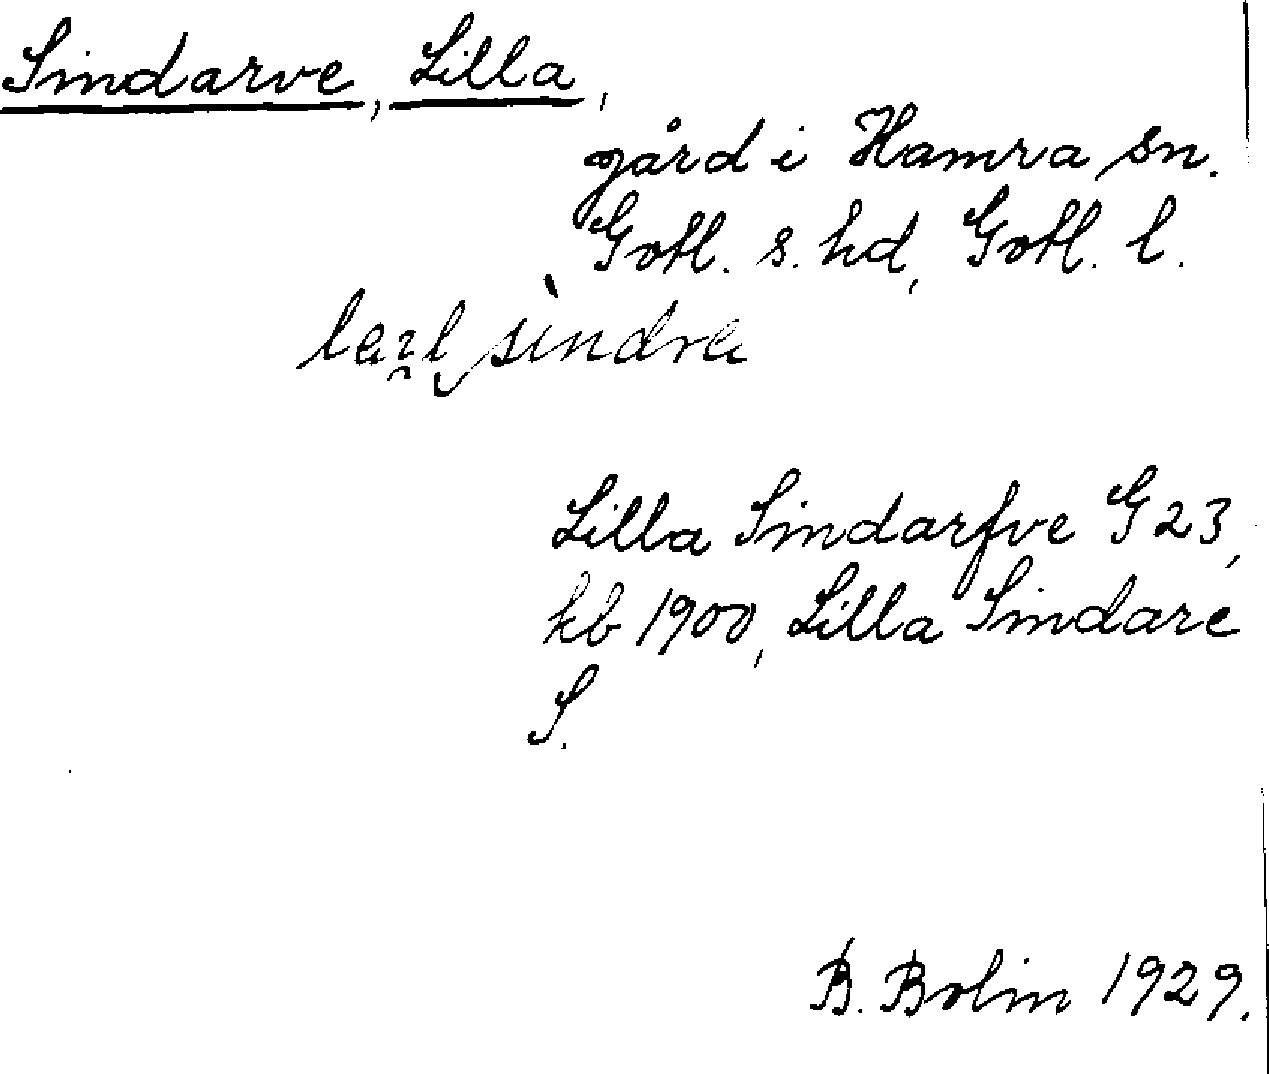 Sindarve, Lilla,
gård i Hamra sn.
Gotl. s. hd, Gotl. l.
sìndra
Lilla Sindarfve G 23,
kb 1900, Lilla Sindare
S.
B. Bolin 1929.